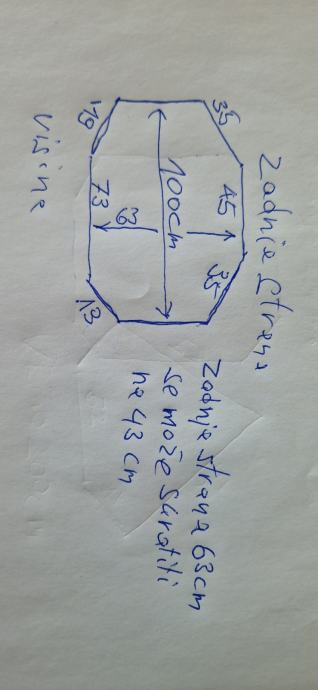 Zadnja strana
35
45
35
100cm
63
19
73
13
visina
Zadnja strana 63cm
se može skratiti
na 43 cm